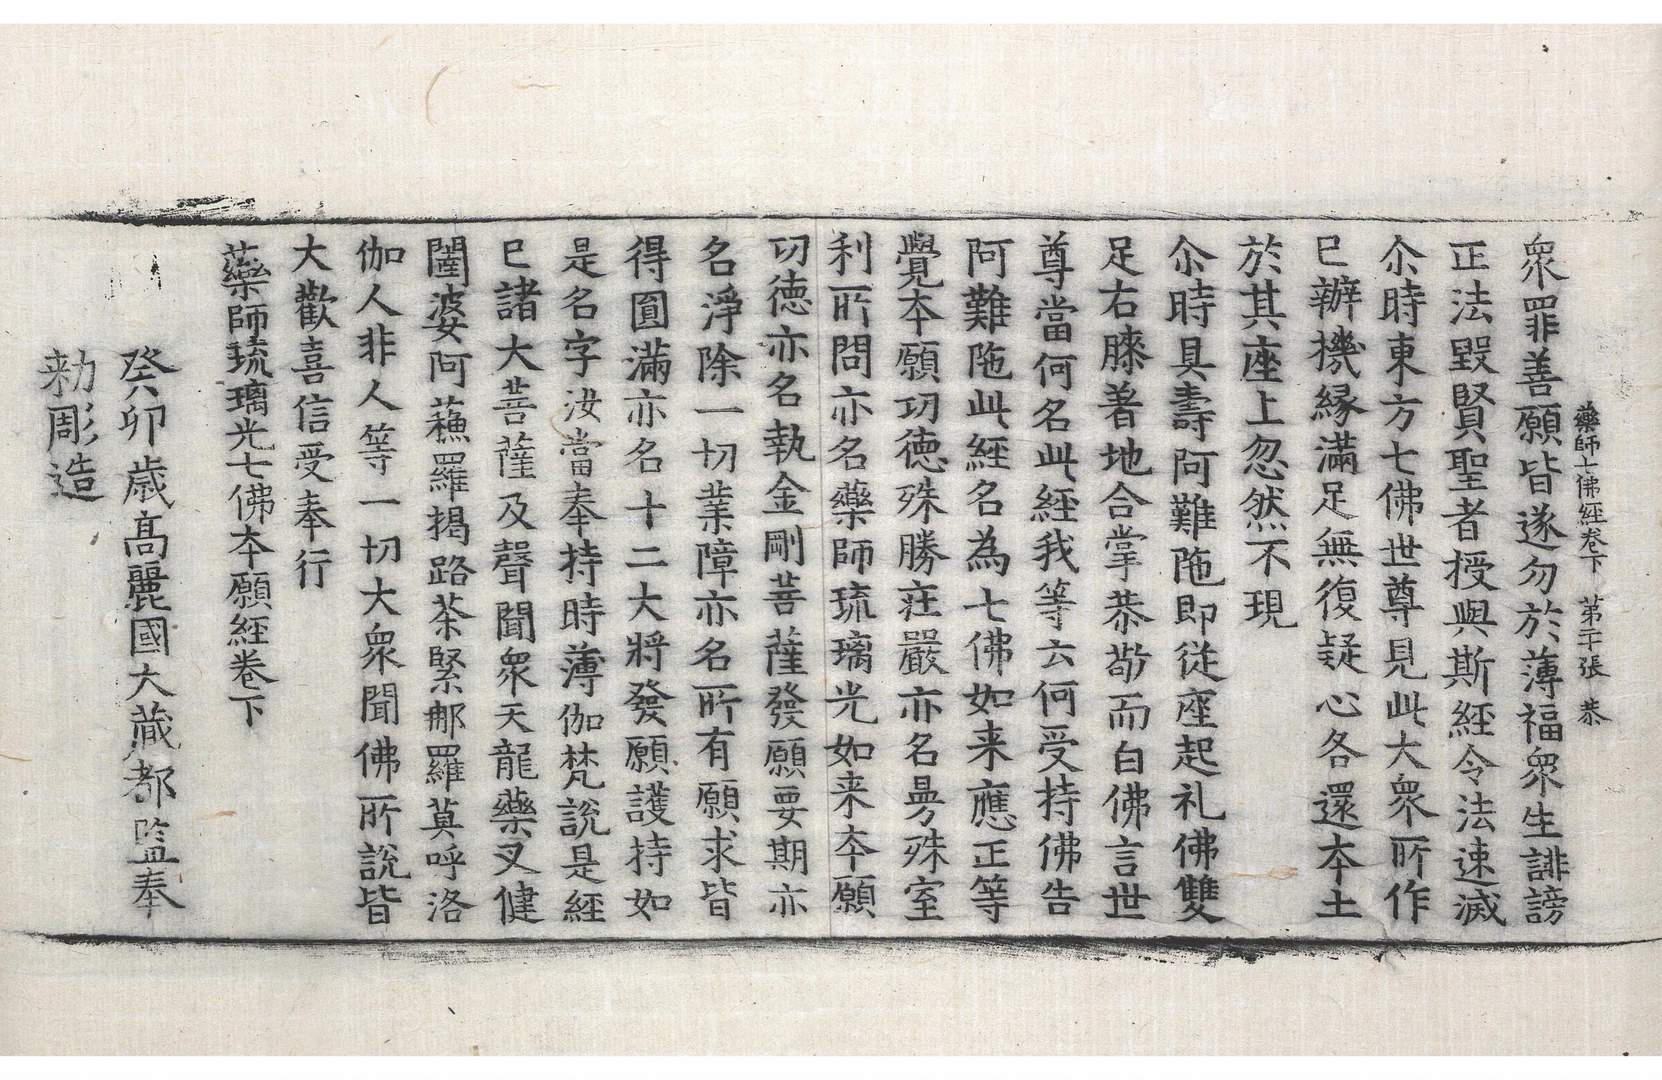 藥師七佛經卷下 第二十張 恭
衆罪善願皆遂勿於薄福衆生誹謗
正法毀賢聖者授與斯經令法速滅
尒時東方七佛世尊見此大衆所作
已辦機緣滿足無復疑心各還本土
於其座上忽然不現
尒時具壽阿難陁即從座起礼佛雙
足右膝著地合掌恭敬而白佛言世
尊當何名此經我等云何受持佛告
阿難陁此經名為七佛如来應正等
覺本願功德殊勝莊嚴亦名曼殊室
利所問亦名藥師琉璃光如来本願
功德亦名執金剛菩薩發願要期亦
名淨除一切業障亦名所有願求皆
得圓滿亦名十二大將發願護持如
是名字汝當奉持時薄伽梵說是經
已諸大菩薩及聲聞衆天龍藥叉健
闥婆阿蘇羅揭路荼緊那羅莫呼洛
伽人非人等一切大衆聞佛所說皆
大歡喜信受奉行
藥師琉璃光七佛本願經卷下
癸卯歲高麗國大藏都監奉
勑彫造